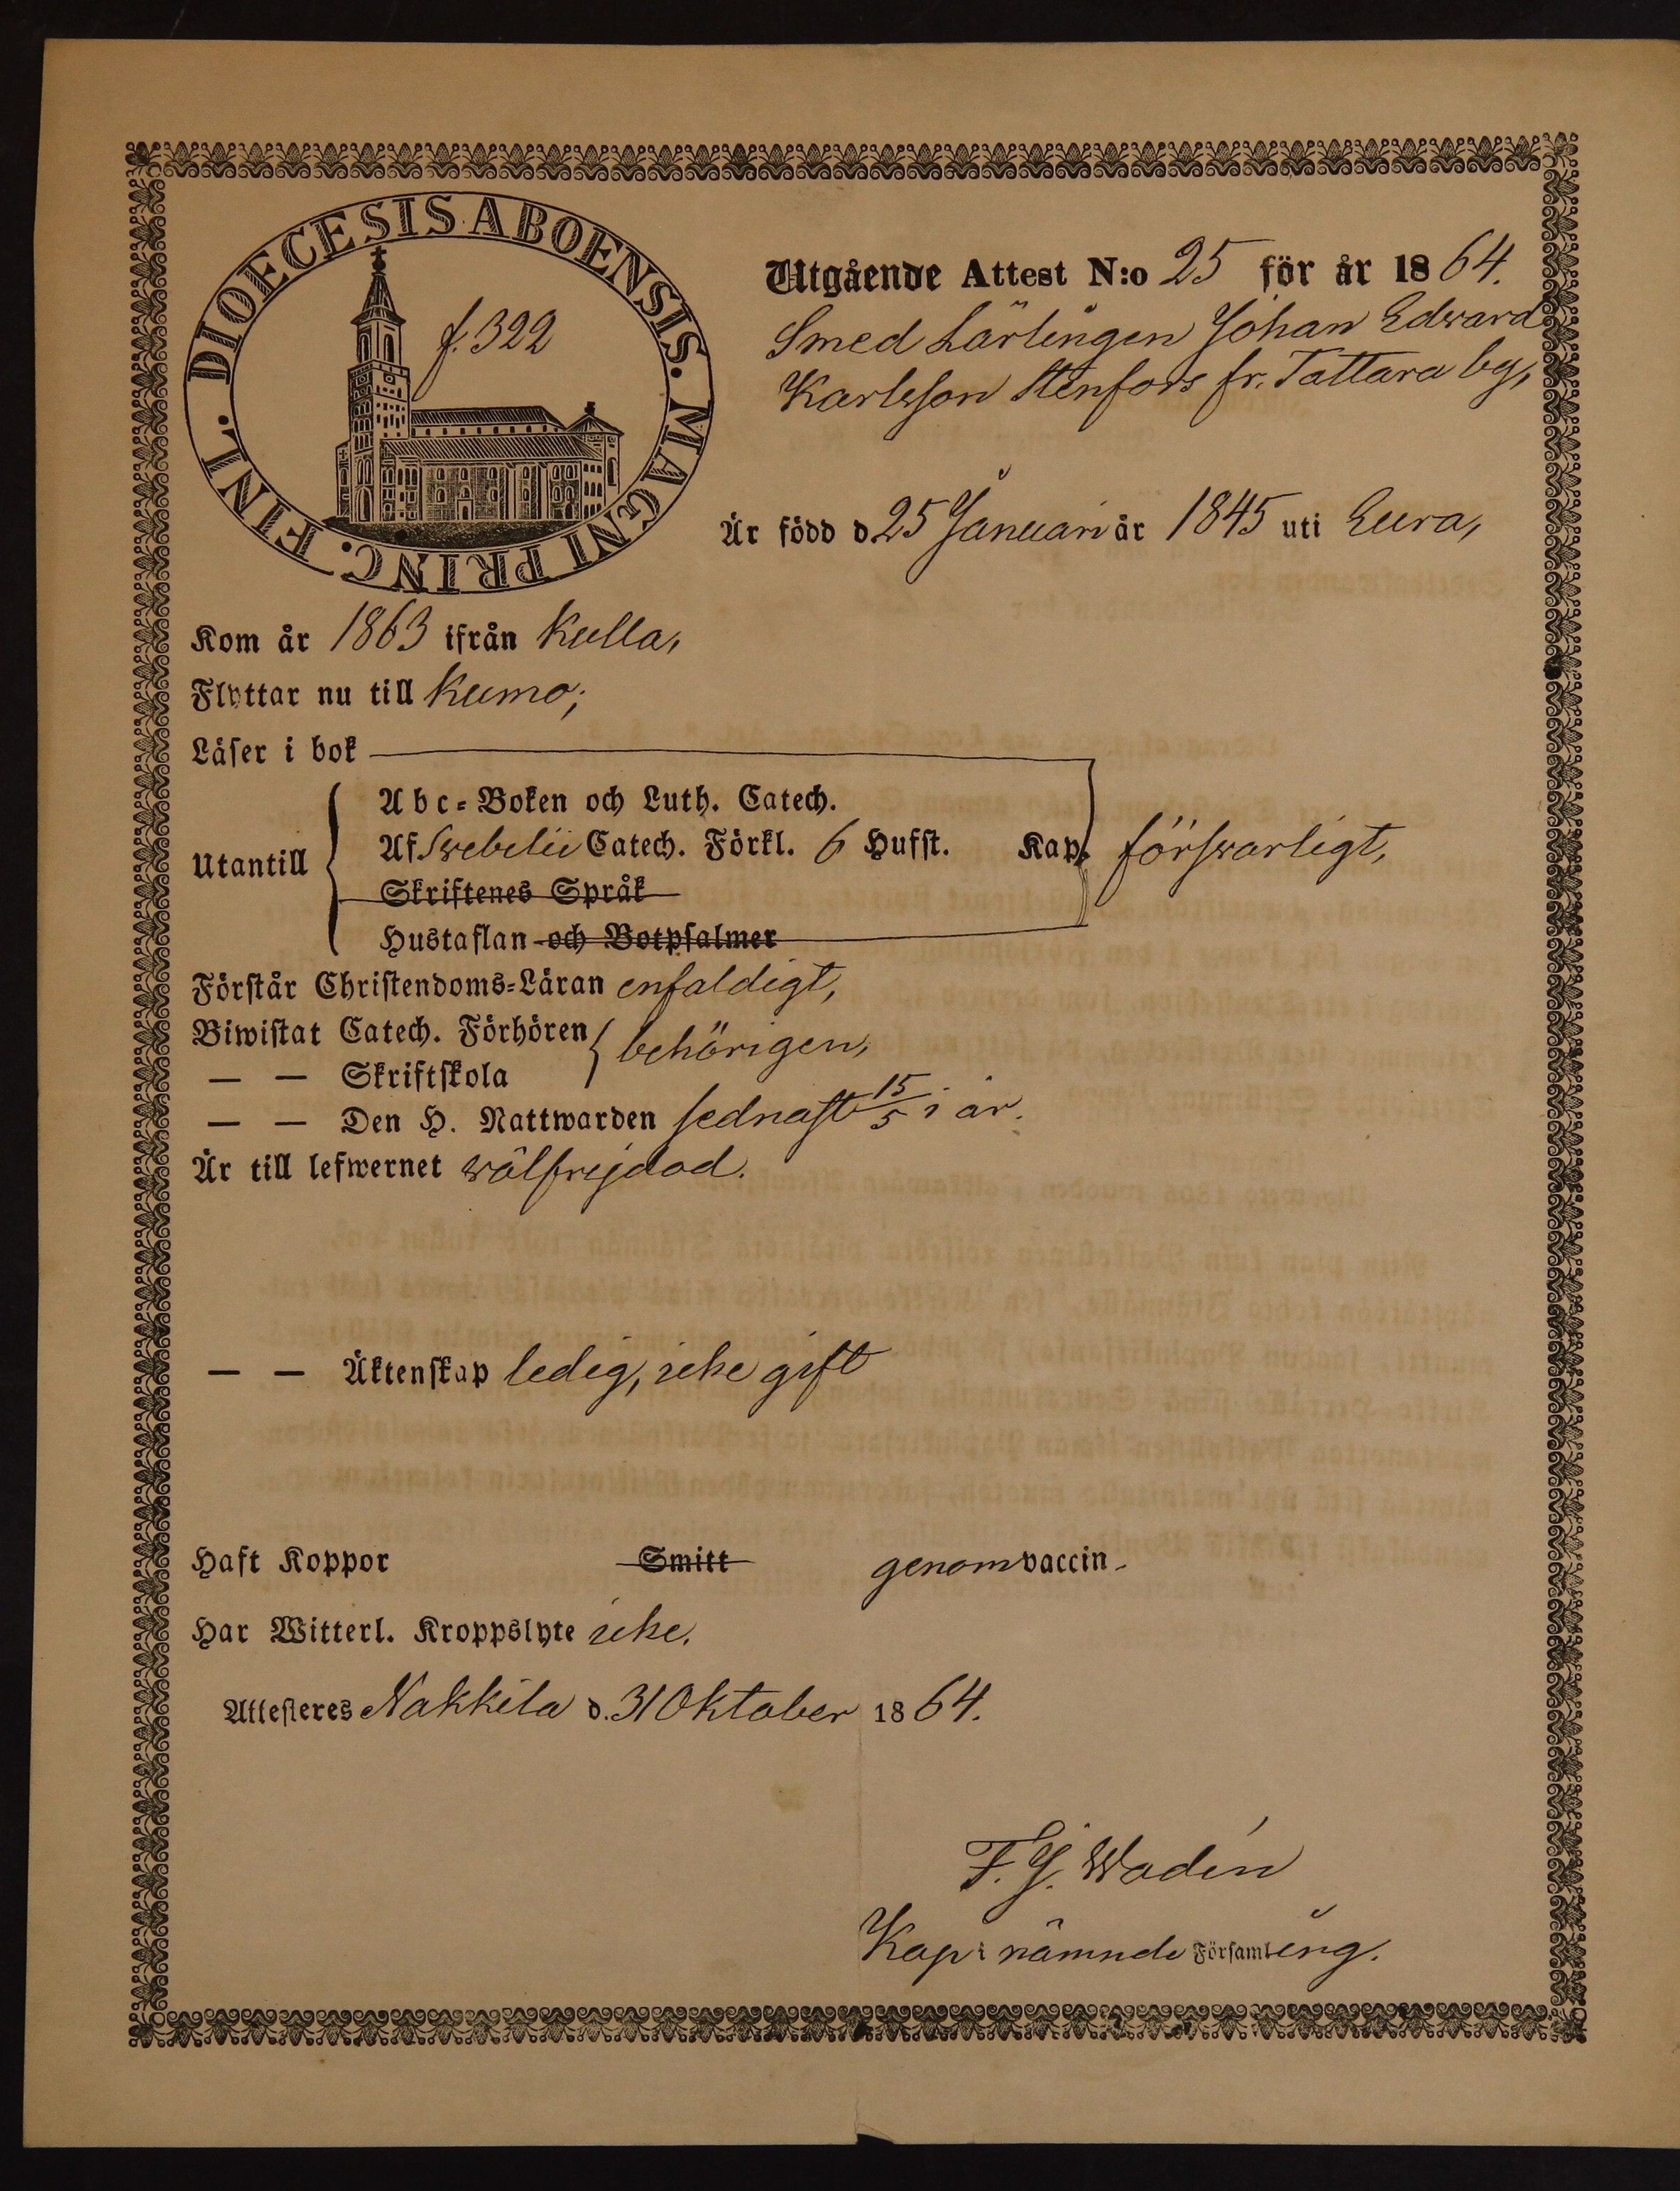 DIOECESIS ABOENSIS. MAGNI PRINC. FINL.
f. 322
Utgående Attest N:o 25 för år 1864.
Smed Lärlingen Johan Edvard
Karlsson Stenfors fr. Tattara by,
Är född d. 25 Januari år 1845 uti Eura,
Kom år 1863 ifrån Kulla,
Flyttar nu till Kumo;
Läser i bok
Utantill
Abc-Boken och Luth. Catech.
Af Swebelii Catech. Förkl. 6 Hufst. Kap. försvarligt,
Skriftenes Språk
Hustaflan och Botpsalmer
Förstår Christendoms-Läran enfaldigt,
Biwistat Catech. Förhören behörigen,
— — Skriftskola
— — Den H. Nattwarden sednast 15/5 i år.
Är till lefwernet wälfrejdad.
— — Äktenskap ledig, icke gift
Haft Koppor Smitt genom vaccin.
Har Witterl. Kroppslyte icke.
Attesteres Nakkila d. 31 Oktober 1864.
F. J. Wadén
Kap. i nämnde Församling.